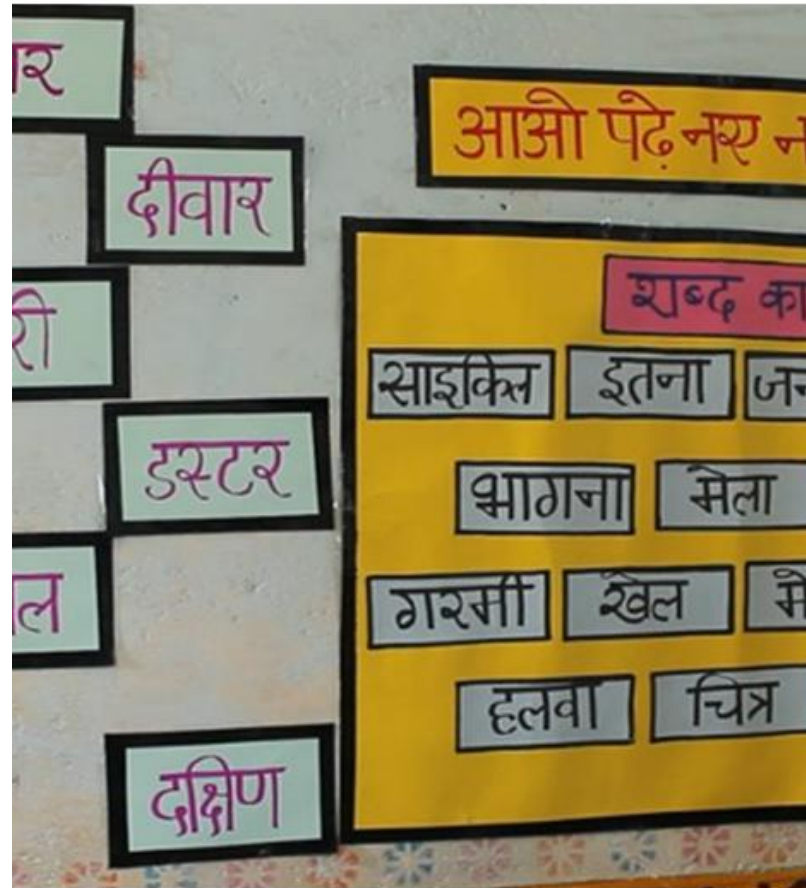 दीवार
डस्टर
दक्षिण
आओ पढ़े नए
शब्द
साइकिल इतना
भागना मेला
गरमी खेल
हलवा चित्र